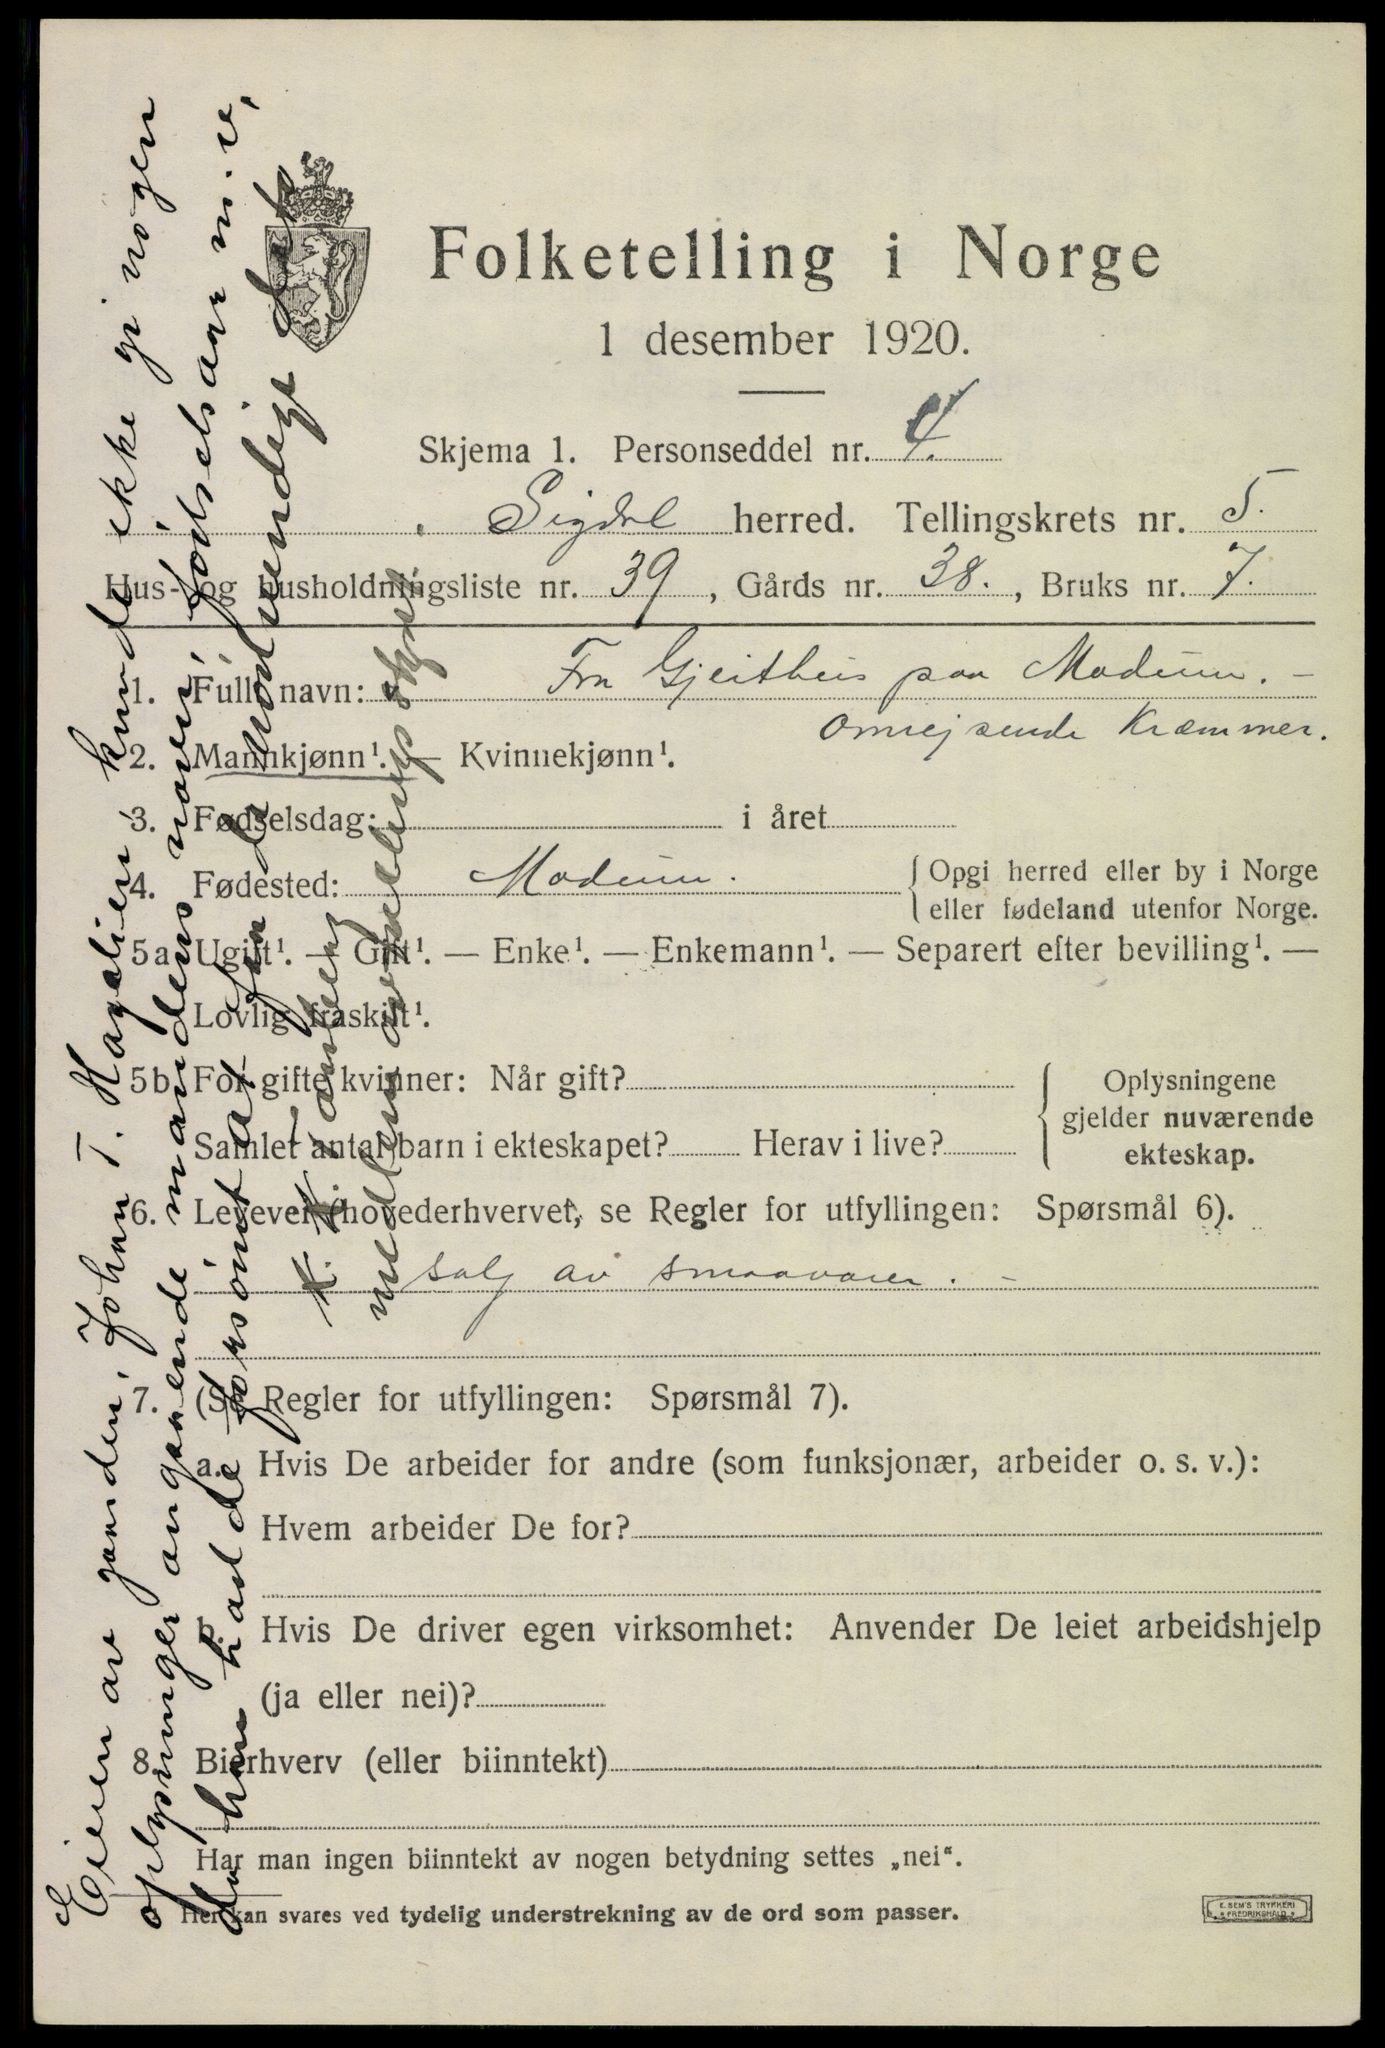 Folketelling i Norge
1 desember 1920.
Skjema 1. Personseddel nr. 4.
Sigdal herred. Tellingskrets nr. 5.
Hus- og husholdningsliste nr. 39, Gårds nr. 38., Bruks nr. 7.
1. Fullt navn: Fra Gjeithus paa Modum. –
omrejsende Kræmmer.
2. Mannkjønn¹. — Kvinnekjønn¹.
3. Fødselsdag: i året
4. Fødested: Modum. { Opgi herred eller by i Norge
eller fødeland utenfor Norge.
5a Ugift¹. — Gift¹. — Enke¹. — Enkemann¹. — Separert efter bevilling¹. —
Lovlig fraskilt¹.
5b For gifte kvinner: Når gift?
Samlet antal barn i ekteskapet? Herav i live?
{ Oplysningene
gjelder nuværende
ekteskap.
6. Levevei (hovederhvervet, se Regler for utfyllingen: Spørsmål 6).
salg av smaavarer. –
7. (Se Regler for utfyllingen: Spørsmål 7).
a. Hvis De arbeider for andre (som funksjonær, arbeider o. s. v.):
Hvem arbeider De for?
b. Hvis De driver egen virksomhet: Anvender De leiet arbeidshjelp
(ja eller nei)?
8. Bierhverv (eller biinntekt)
Har man ingen biinntekt av nogen betydning settes „nei“.
¹ Her kan svares ved tydelig understrekning av de ord som passer.
E. SEM'S TRYKKERI
FREDRIKSHALD
Eieren av gaarden, Johan T. Hagalien kunde ikke gi nogen
oplysninger angaaende mandens navn, fødselsaar m.v,
da han hadde forsömt at faa de nödvendige
mellem